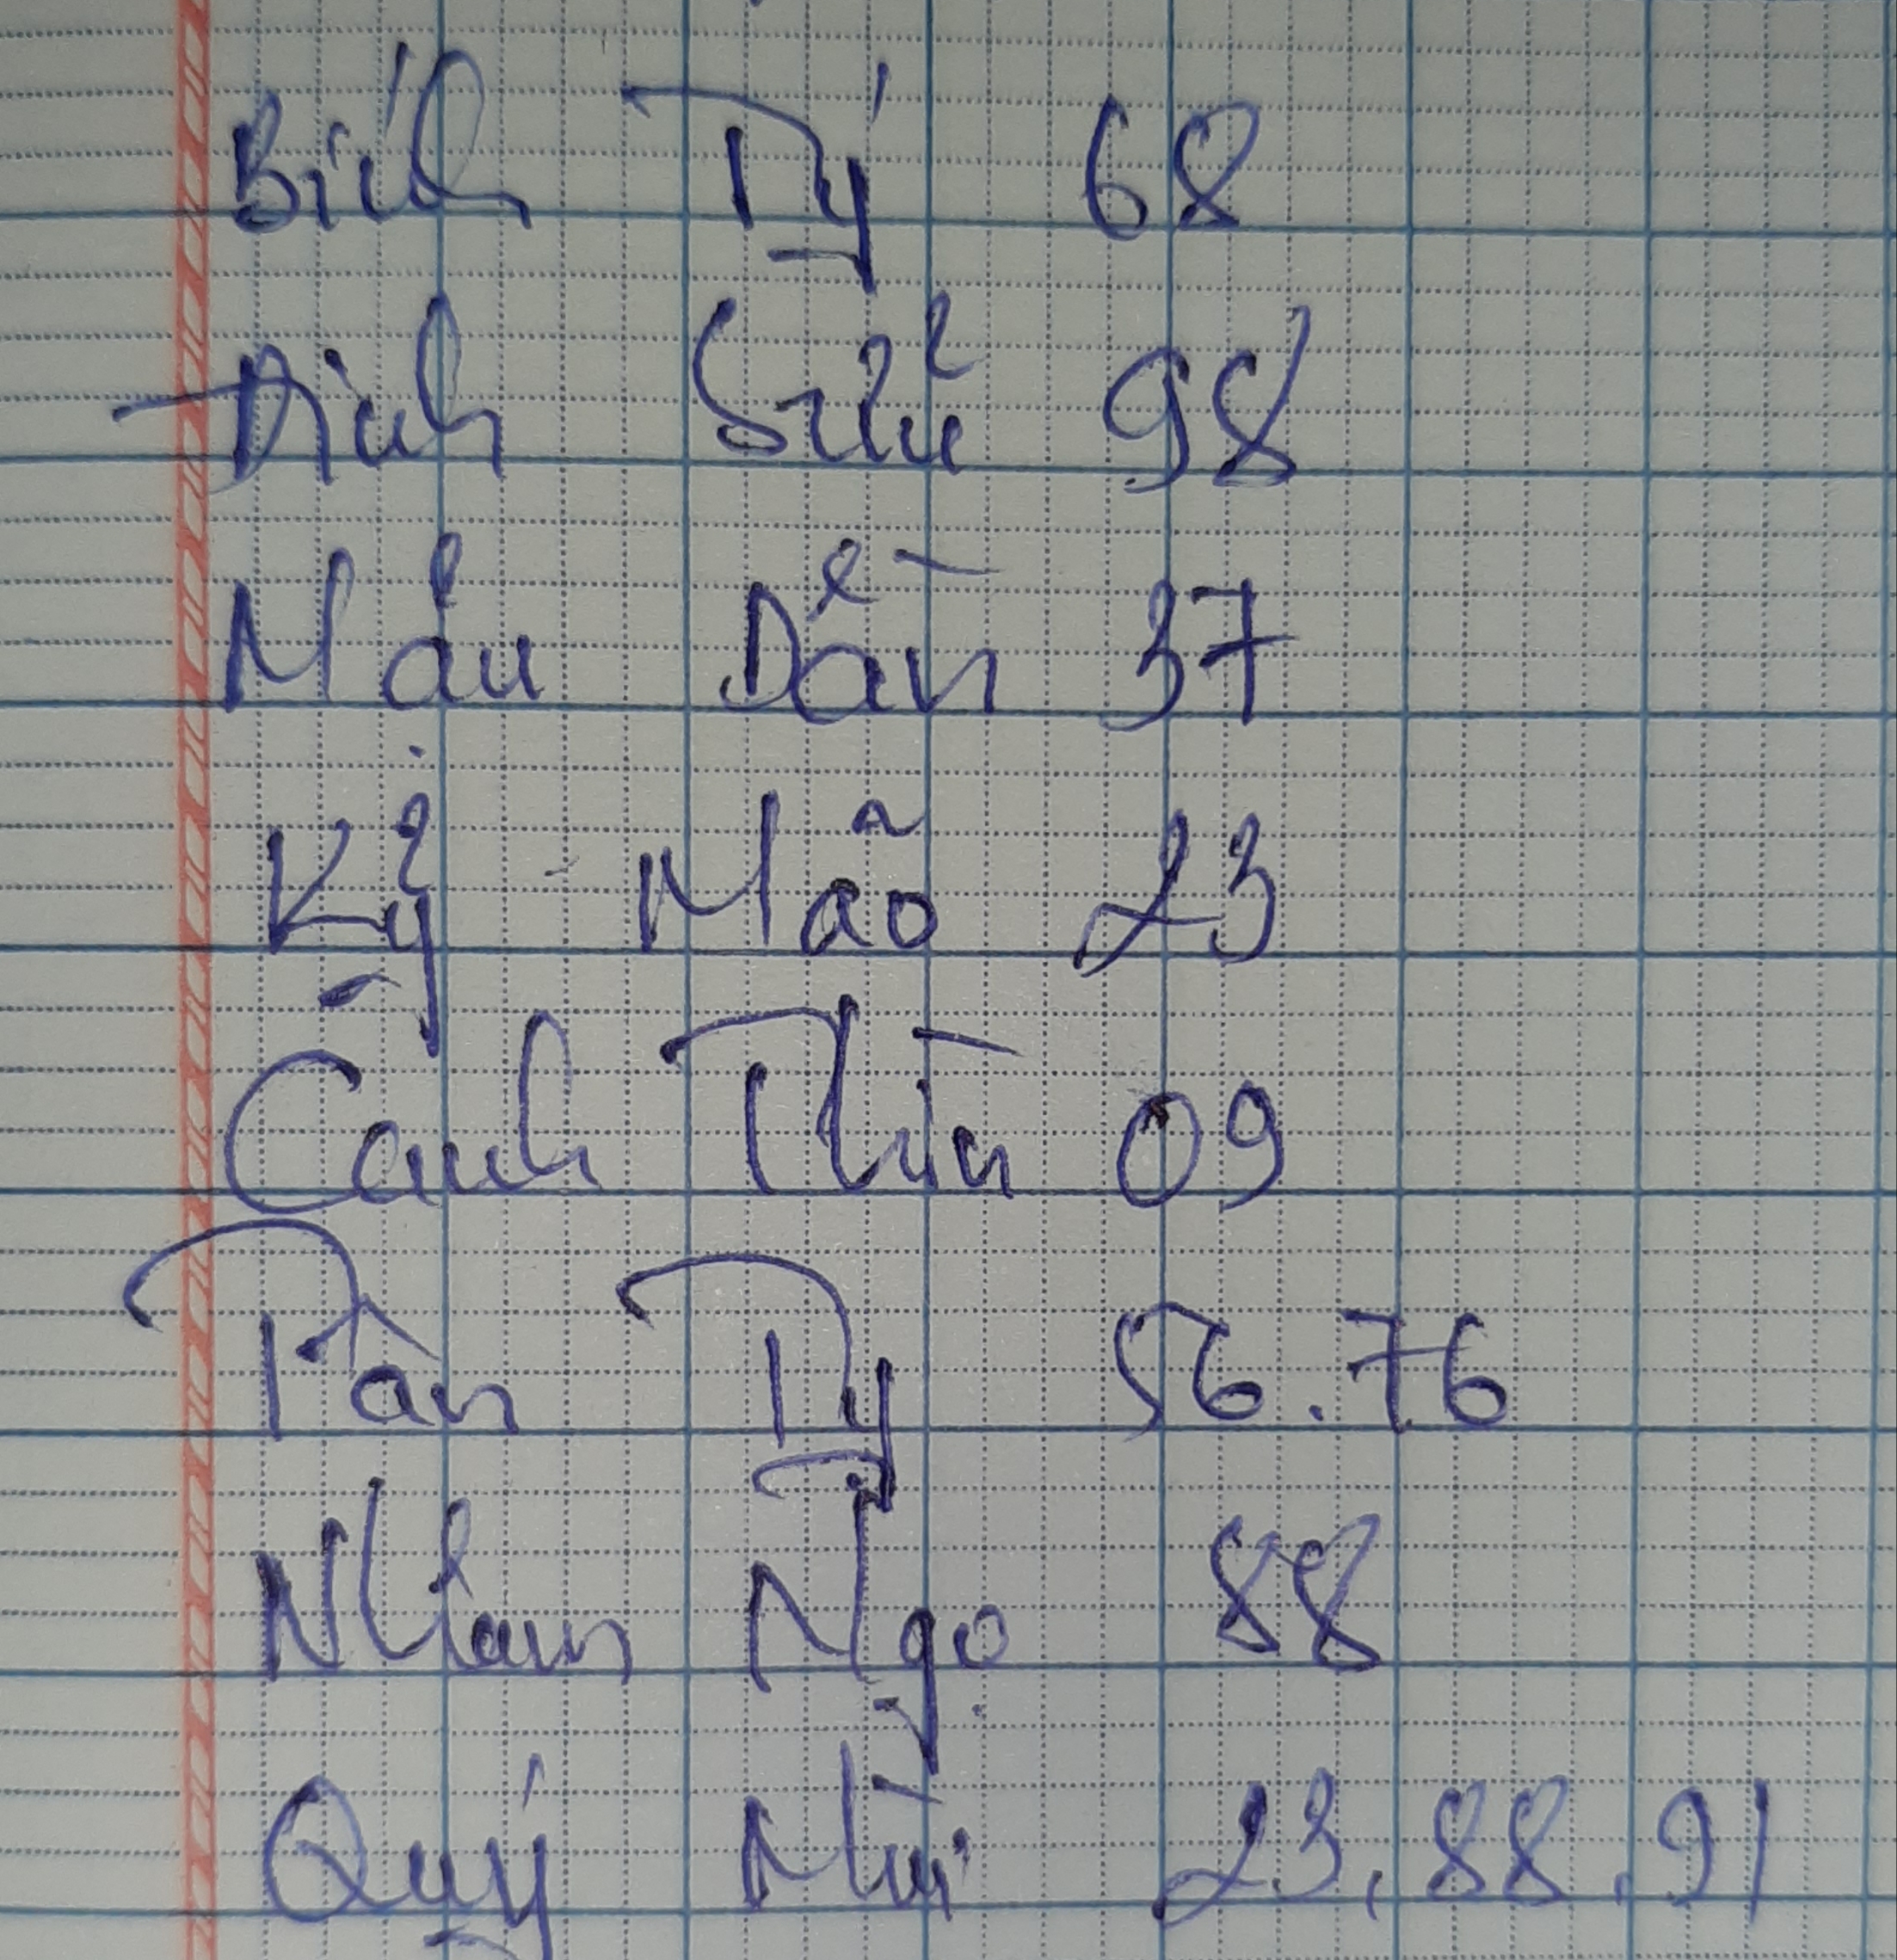 Bích Tý 68
Đinh Sửu 98
Mậu Dần 37
Kỷ Mão 23
Canh Thìn 09
Tân Tỵ 56.76
Nham Ngọ 88
Quý Mùi 23, 88, 91